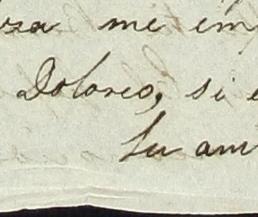 za me em
Dolores, si e
tu am